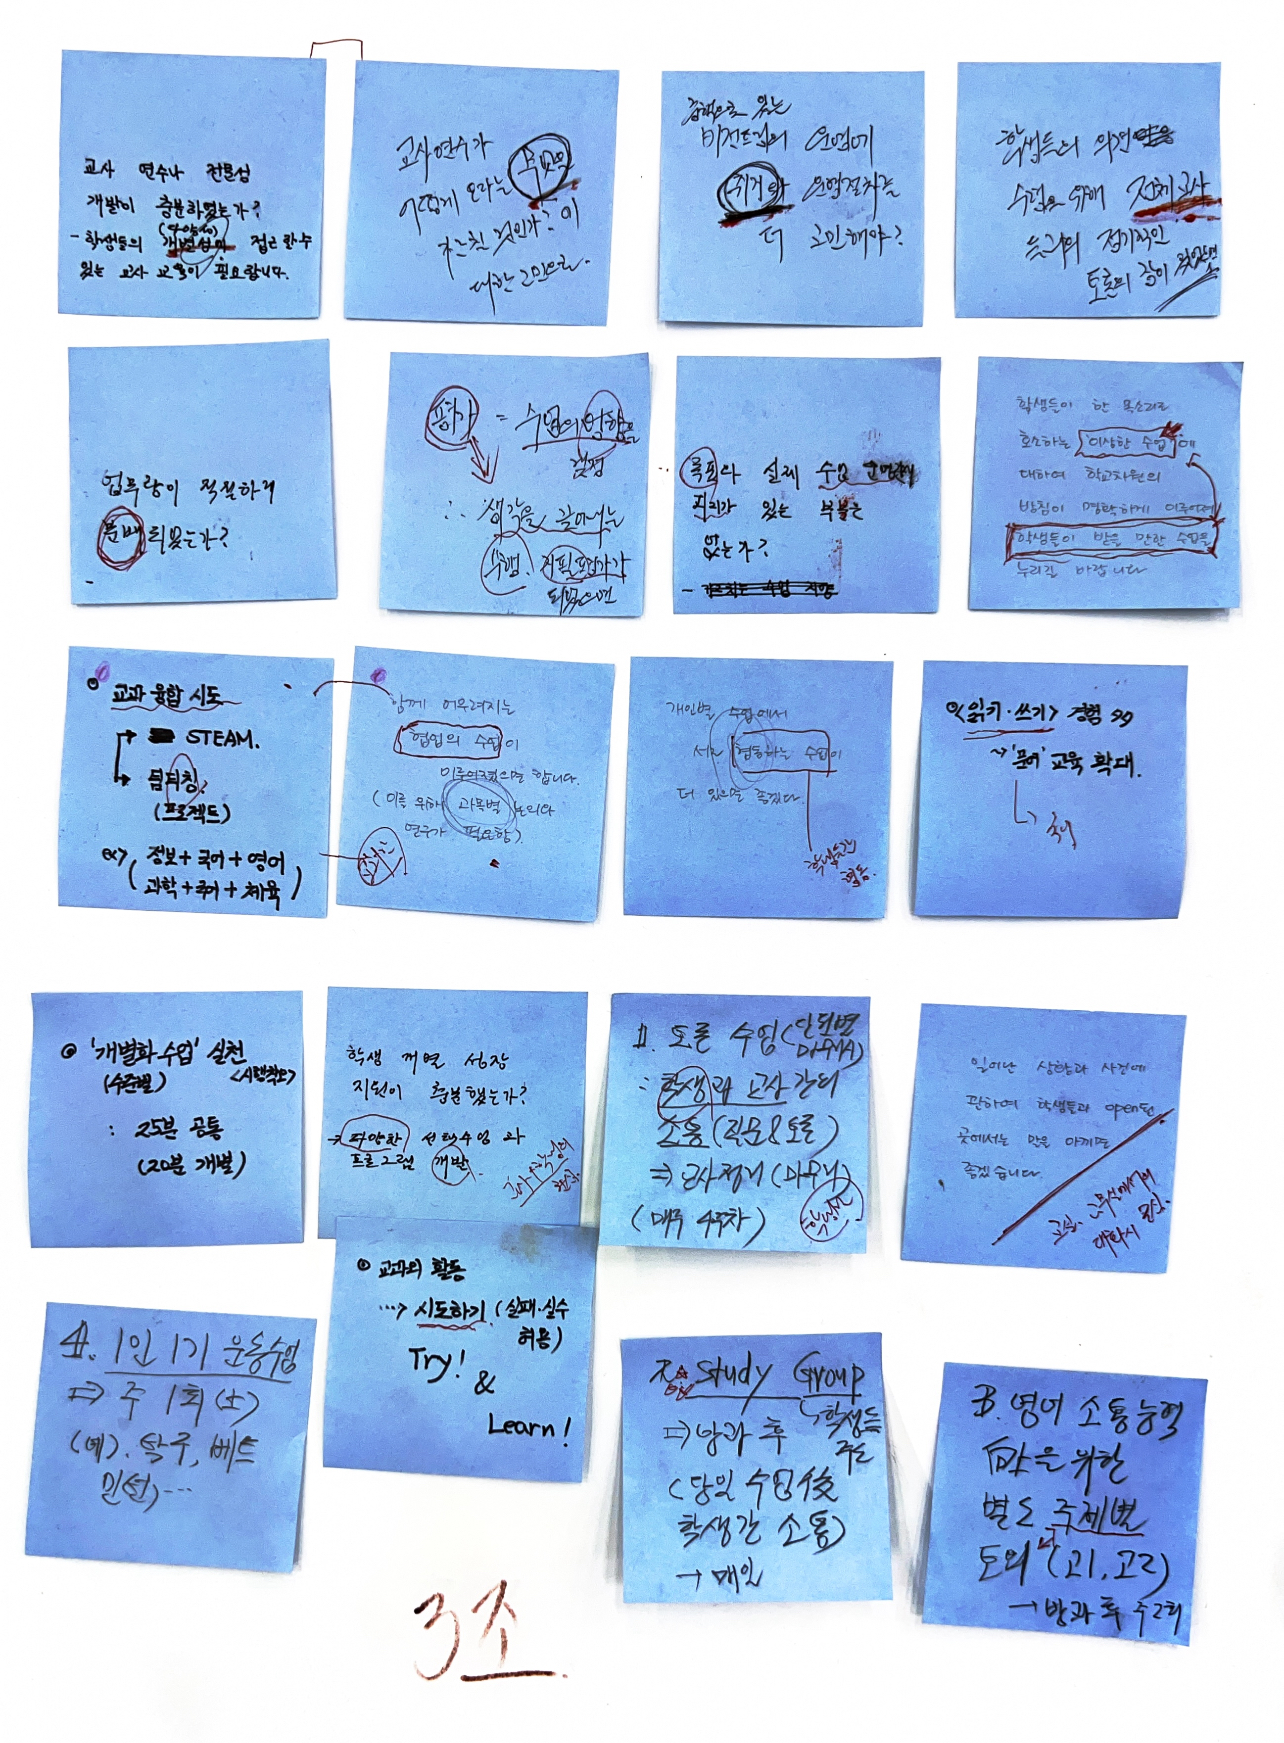 교사 연수나 전문성
개발이 충분하였는가?
(다양성)
- 학생들의 개별성에 접근할 수
있는 교사 교육이 필요합니다.
교사연수가
어떻게 오라는 무엇을
가르친 것인가? 이
대한 고민으로.
비전트립의 운영에
취지와 운영절차를
더 고민해야?
학생들의 의견
수렴을 위해 전체 교사
들과의 정기적인
토론의 장이 있었으면
업무량이 적절하게
분배 되었는가?
-
평가 = 수업의 역량을
결정
∴ 생각을 끌어내는
수행. 지필평가가
되었으면
목표와 실제 수업
괴리가 있는 부분은
없는가?
학생들이 한 목소리로
호소하는 '이상한 수업'에
대하여 학교차원의
방침이 명확하게 이루어져
학생들이 받을 만한 수업을
누리길 바랍니다
교과 융합 시도
STEAM.
팀티칭.
(프로젝트)
ex) (정보+국어+영어
과학+국어+체육)
함께 어우러지는
협업의 수업이
이루어졌으면 합니다.
(이를 위해 과목별 논의와
연구가 필요함)
개인별 수업에서
서로 협동하는 수업이
더 있으면 좋겠다.
학생들간
협동.
<읽기·쓰기> 경험
~> '문어' 교육 확대.
국어
'개별화수업' 실천
(수준별) <시행착오>
: 25분 공통
(20분 개별)
학생 개별 성장
지원이 충분했는가?
→ 다양한 선택수업과
프로그램 개발.
1. 토론 수업(단원별
마무리)
: 학생과 교장 간의
소통(질문&토론)
⇒ 교사정리(마무리)
(매주 4주차)
일어난 상황과 사건에
관하여 학생들과 open된
곳에서는 말을 아끼면
좋겠습니다.
교실, 교무실에서의
대화시 조심.
교과외 활동
…> 시도하기(실패·실수
허용)
Try!
&
Learn!
4. 1인 1기 운동수업
⇒ 주 1회(土)
(예). 탁구, 배드
민턴)…
2. Study Group
학생들
주도
⇒ 방과 후
(당일 수업 後
학생간 소통)
→ 매일
3. 영어 소통능력
向上을 위한
별도 주제별
토의 (고1, 고2)
→ 방과 후 주2회
3조